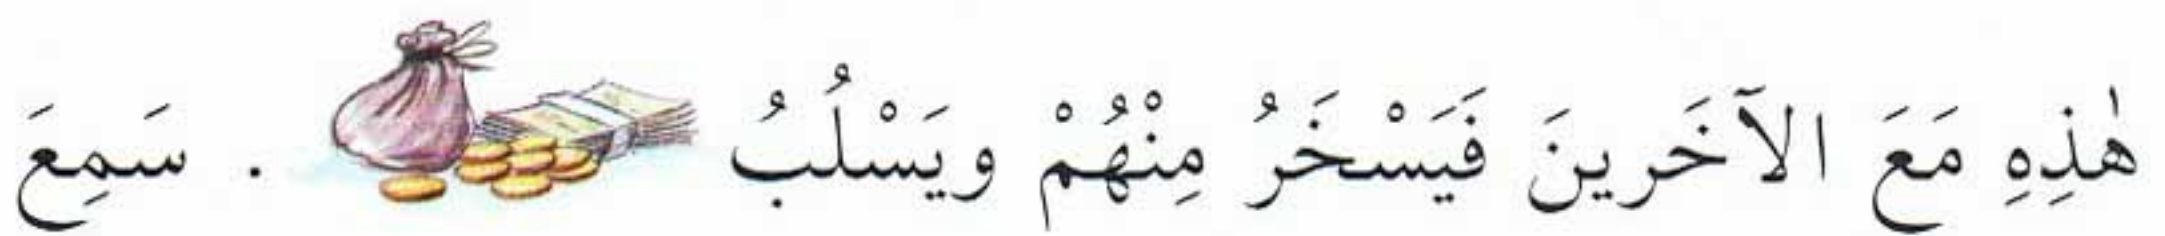 هٰذِهِ مَعَ الآخَرينَ فَيَسْخَرُ مِنْهُمْ ويَسْلُبُ . سَمِعَ